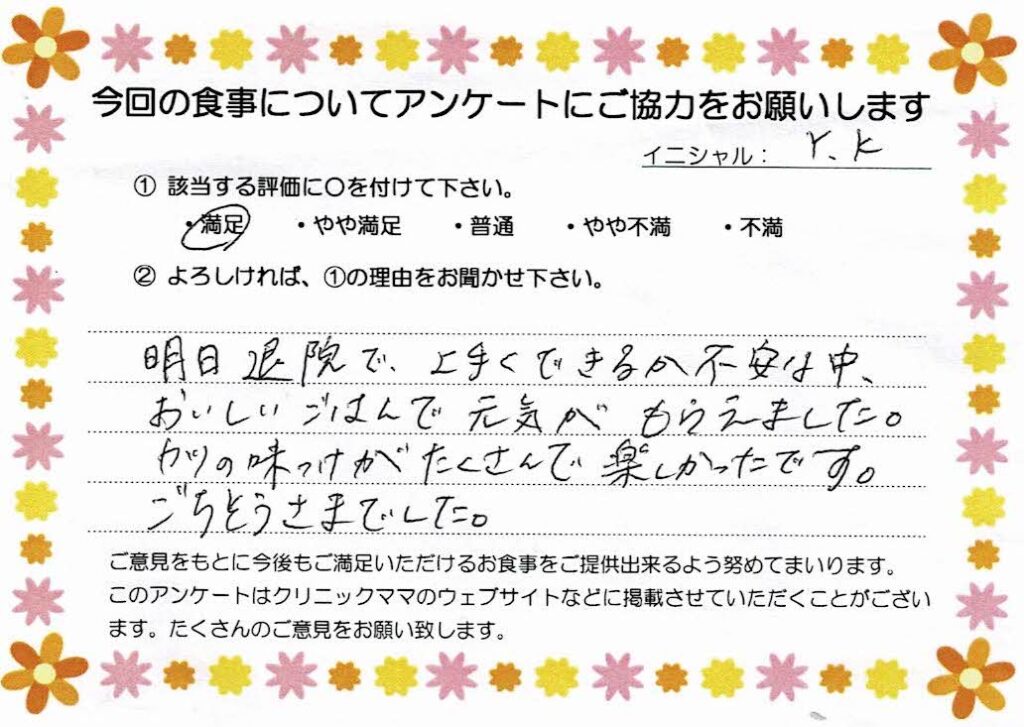 今回の食事についてアンケートにご協力をお願いします
イニシャル： Y.K
① 該当する評価に○を付けて下さい。
・満足 ・やや満足 ・普通 ・やや不満 ・不満
② よろしければ、①の理由をお聞かせ下さい。
明日退院で、上手くできるか不安な中、
おいしいごはんで元気がもらえました。
カツの味つけがたくさんで楽しかったです。
ごちそうさまでした。
ご意見をもとに今後もご満足いただけるお食事をご提供出来るよう努めてまいります。
このアンケートはクリニックママのウェブサイトなどに掲載させていただくことがござい
ます。たくさんのご意見をお願い致します。